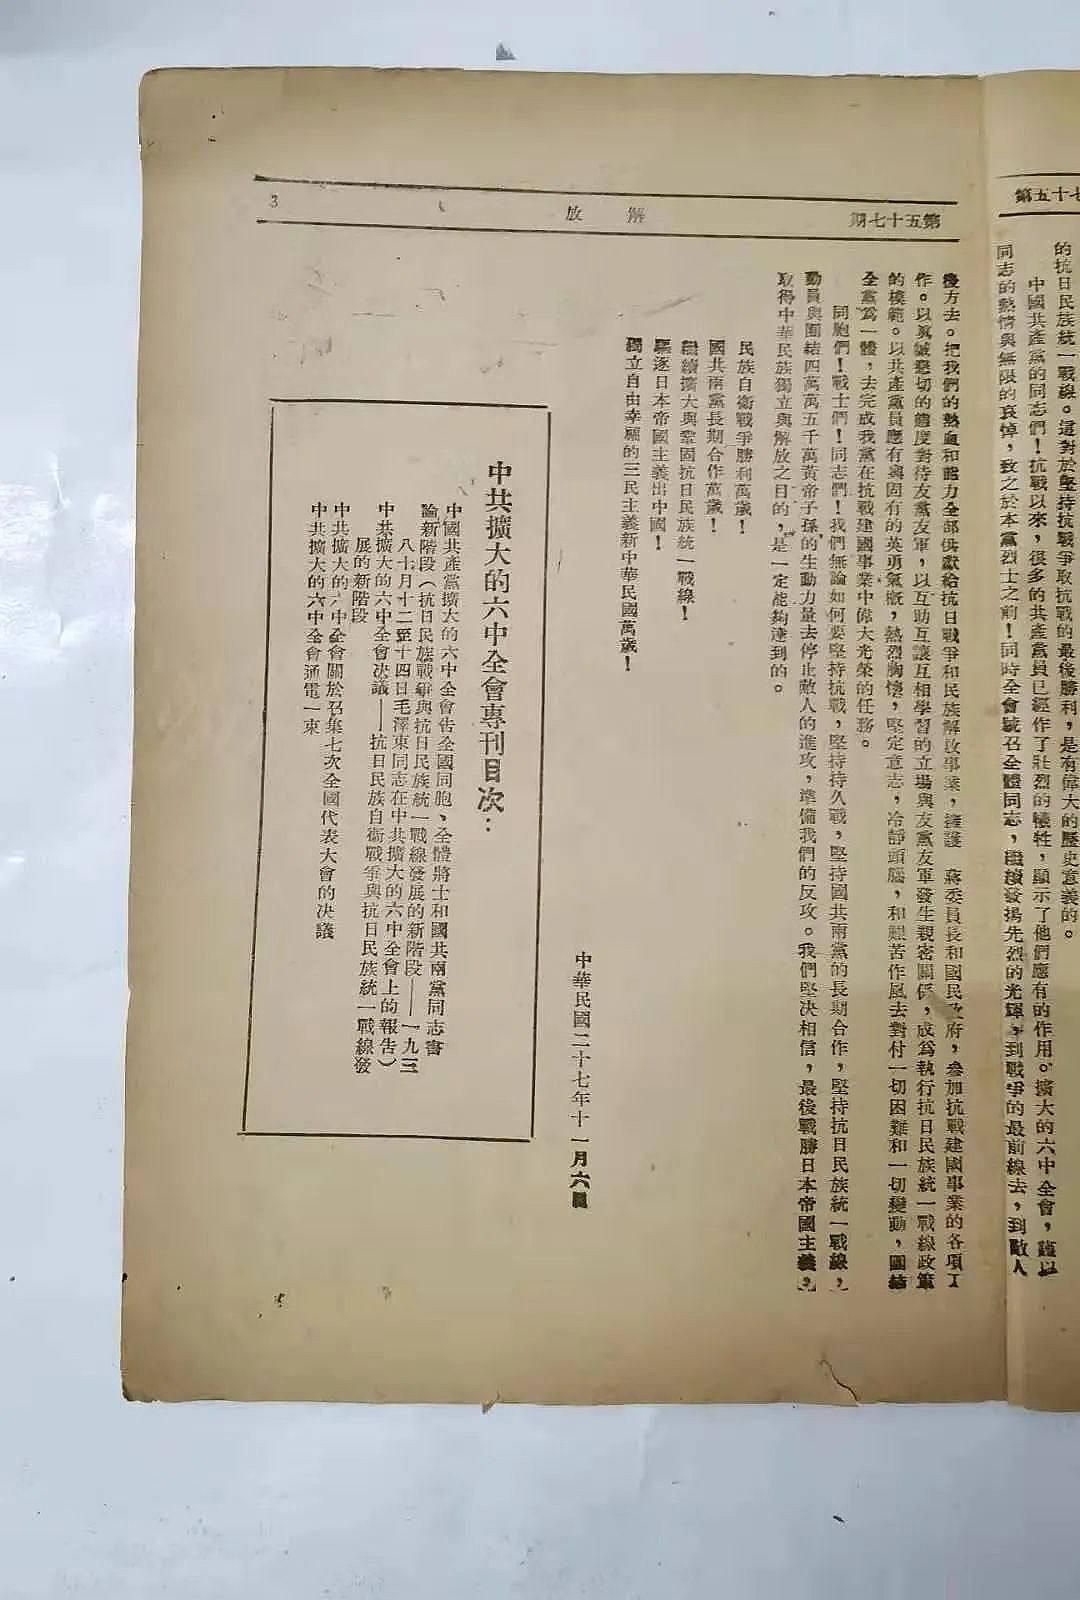 第五十七
的抗日民族統一戰線。這對於堅持抗戰爭取抗戰的最後勝利，是有偉大的歷史意義的。
中國共產黨的同志們！抗戰以來，很多的共產黨員已經作了壯烈的犧牲，顯示了他們應有的作用。擴大的六中全會，謹以
同志的熱情與無限的哀悼，致之於本黨烈士之前！同時全會號召全體同志，繼續發揚先烈的光輝，到戰爭的最前線去，到敵人
第五十七期
解放
3
後方去。把我們的熱血和能力全部供獻給抗日戰爭和民族解放事業，擁護　蔣委員長和國民政府，參加抗戰建國事業的各項工
作。以眞誠懇切的態度對待友黨友軍，以互助互讓互相學習的立場與友黨友軍發生親密關係，成爲執行抗日民族統一戰線政策
的模範。以共產黨員應有與固有的英勇氣概，熱烈胸懷，堅定意志，冷靜頭腦，和艱苦作風去對付一切困難和一切變動，團結
全黨爲一體，去完成我黨在抗戰建國事業中偉大光榮的任務。
同胞們！戰士們！同志們！我們無論如何要堅持抗戰，堅持持久戰，堅持國共兩黨的長期合作，堅持抗日民族統一戰線，
動員與團結四萬萬五千萬黃帝子孫的生動力量去停止敵人的進攻，準備我們的反攻。我們堅決相信，最後戰勝日本帝國主義，
取得中華民族獨立與解放之目的，是一定能夠達到的。
民族自衛戰爭勝利萬歲！
國共兩黨長期合作萬歲！
繼續擴大與鞏固抗日民族統一戰線！
驅逐日本帝國主義出中國！
獨立自由幸福的三民主義新中華民國萬歲！
中華民國二十七年十一月六日
中共擴大的六中全會專刊目次：
中國共產黨擴大的六中全會告全國同胞、全體將士和國共兩黨同志書
論新階段（抗日民族戰爭與抗日民族統一戰線發展的新階段——一九三
八十月十二至十四日毛澤東同志在中共擴大的六中全會上的報告）
中共擴大的六中全會決議——抗日民族自衛戰爭與抗日民族統一戰線發
展的新階段
中共擴大的六中全會關於召集七次全國代表大會的決議
中共擴大的六中全會通電一束